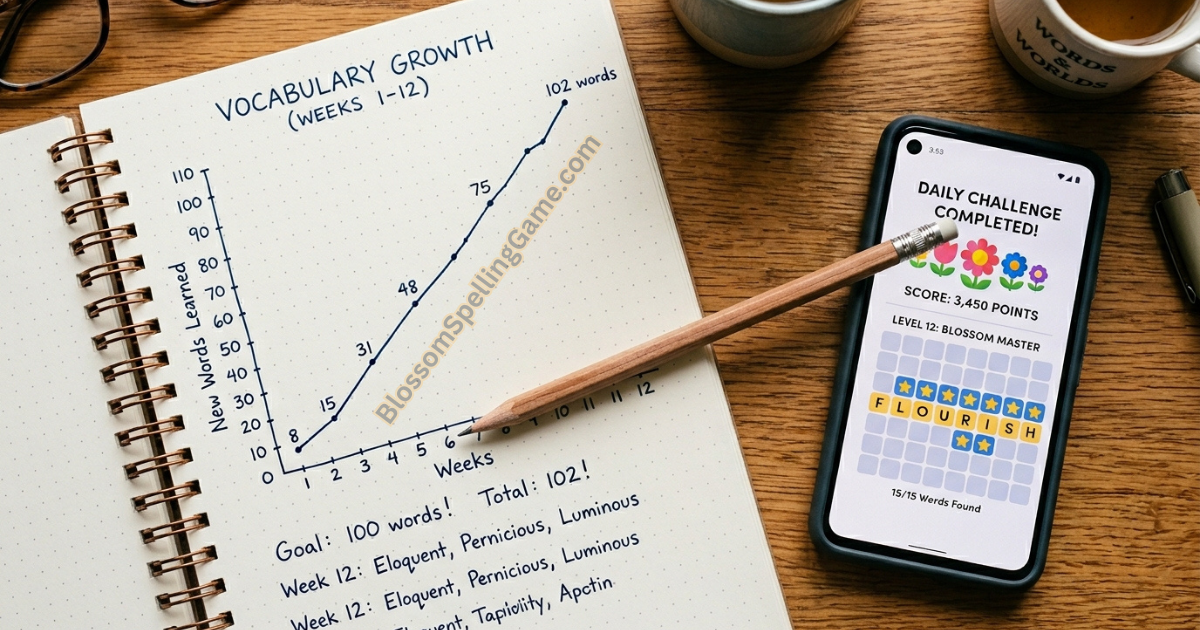 VOCABULARY GROWTH
(WEEKS 1-12)
102 words
110
100
90
80
70
60
50
40
30
20
10
0
New Words Learned
75
48
31
15
8
1 2 3 4 5 6 7 8 9 10 11 11 12
Weeks
Goal: 100 words! Total: 102!
Week 12: Eloquent, Pernicious, Luminous
Week 12: Eloquent, Pernicious, Luminous
BlossomSpellingGame.com
WORDS
&
WORLDS
3:53
DAILY CHALLENGE
COMPLETED!
SCORE: 3,450 POINTS
LEVEL 12: BLOSSOM MASTER
FLOURISH
15/15 Werds Found